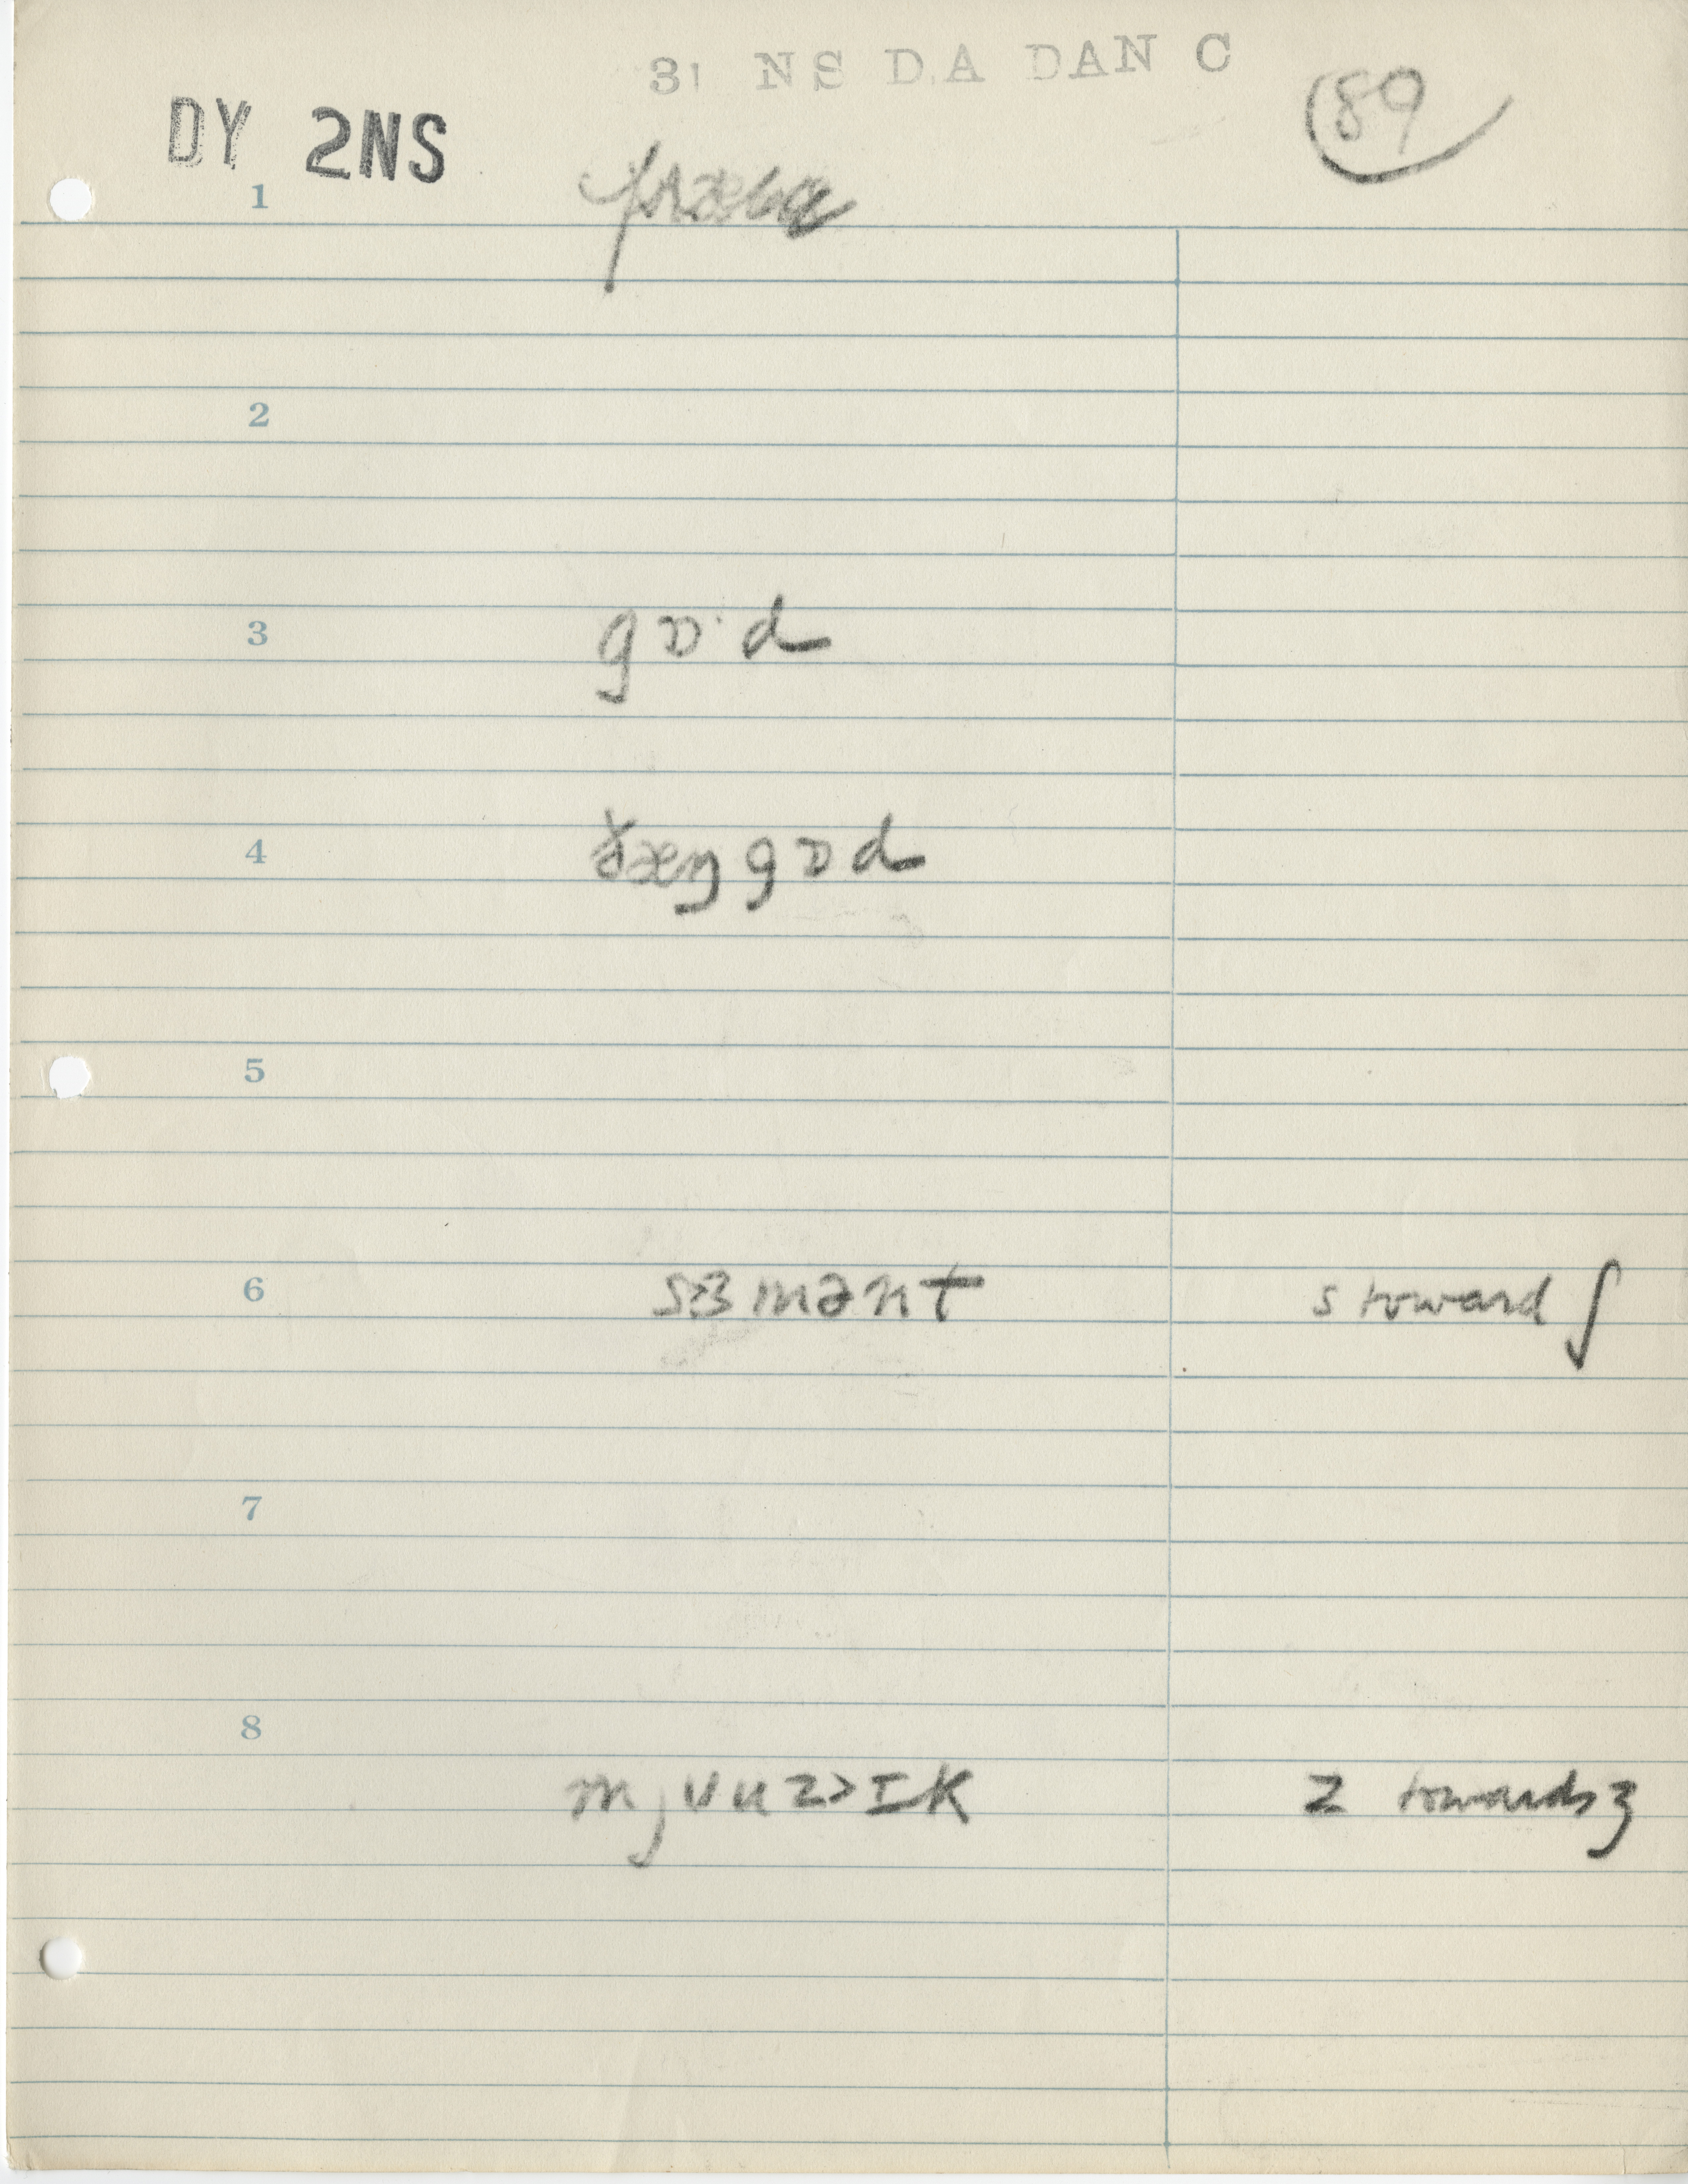 31 NS DA DAN C
89
DY 2NS
1
2
3 gɒ·d
4 ðæŋgɒd
5
6 s3mənt s toward ʃ
7
8 mjuuz>ɪk z towards ʒ